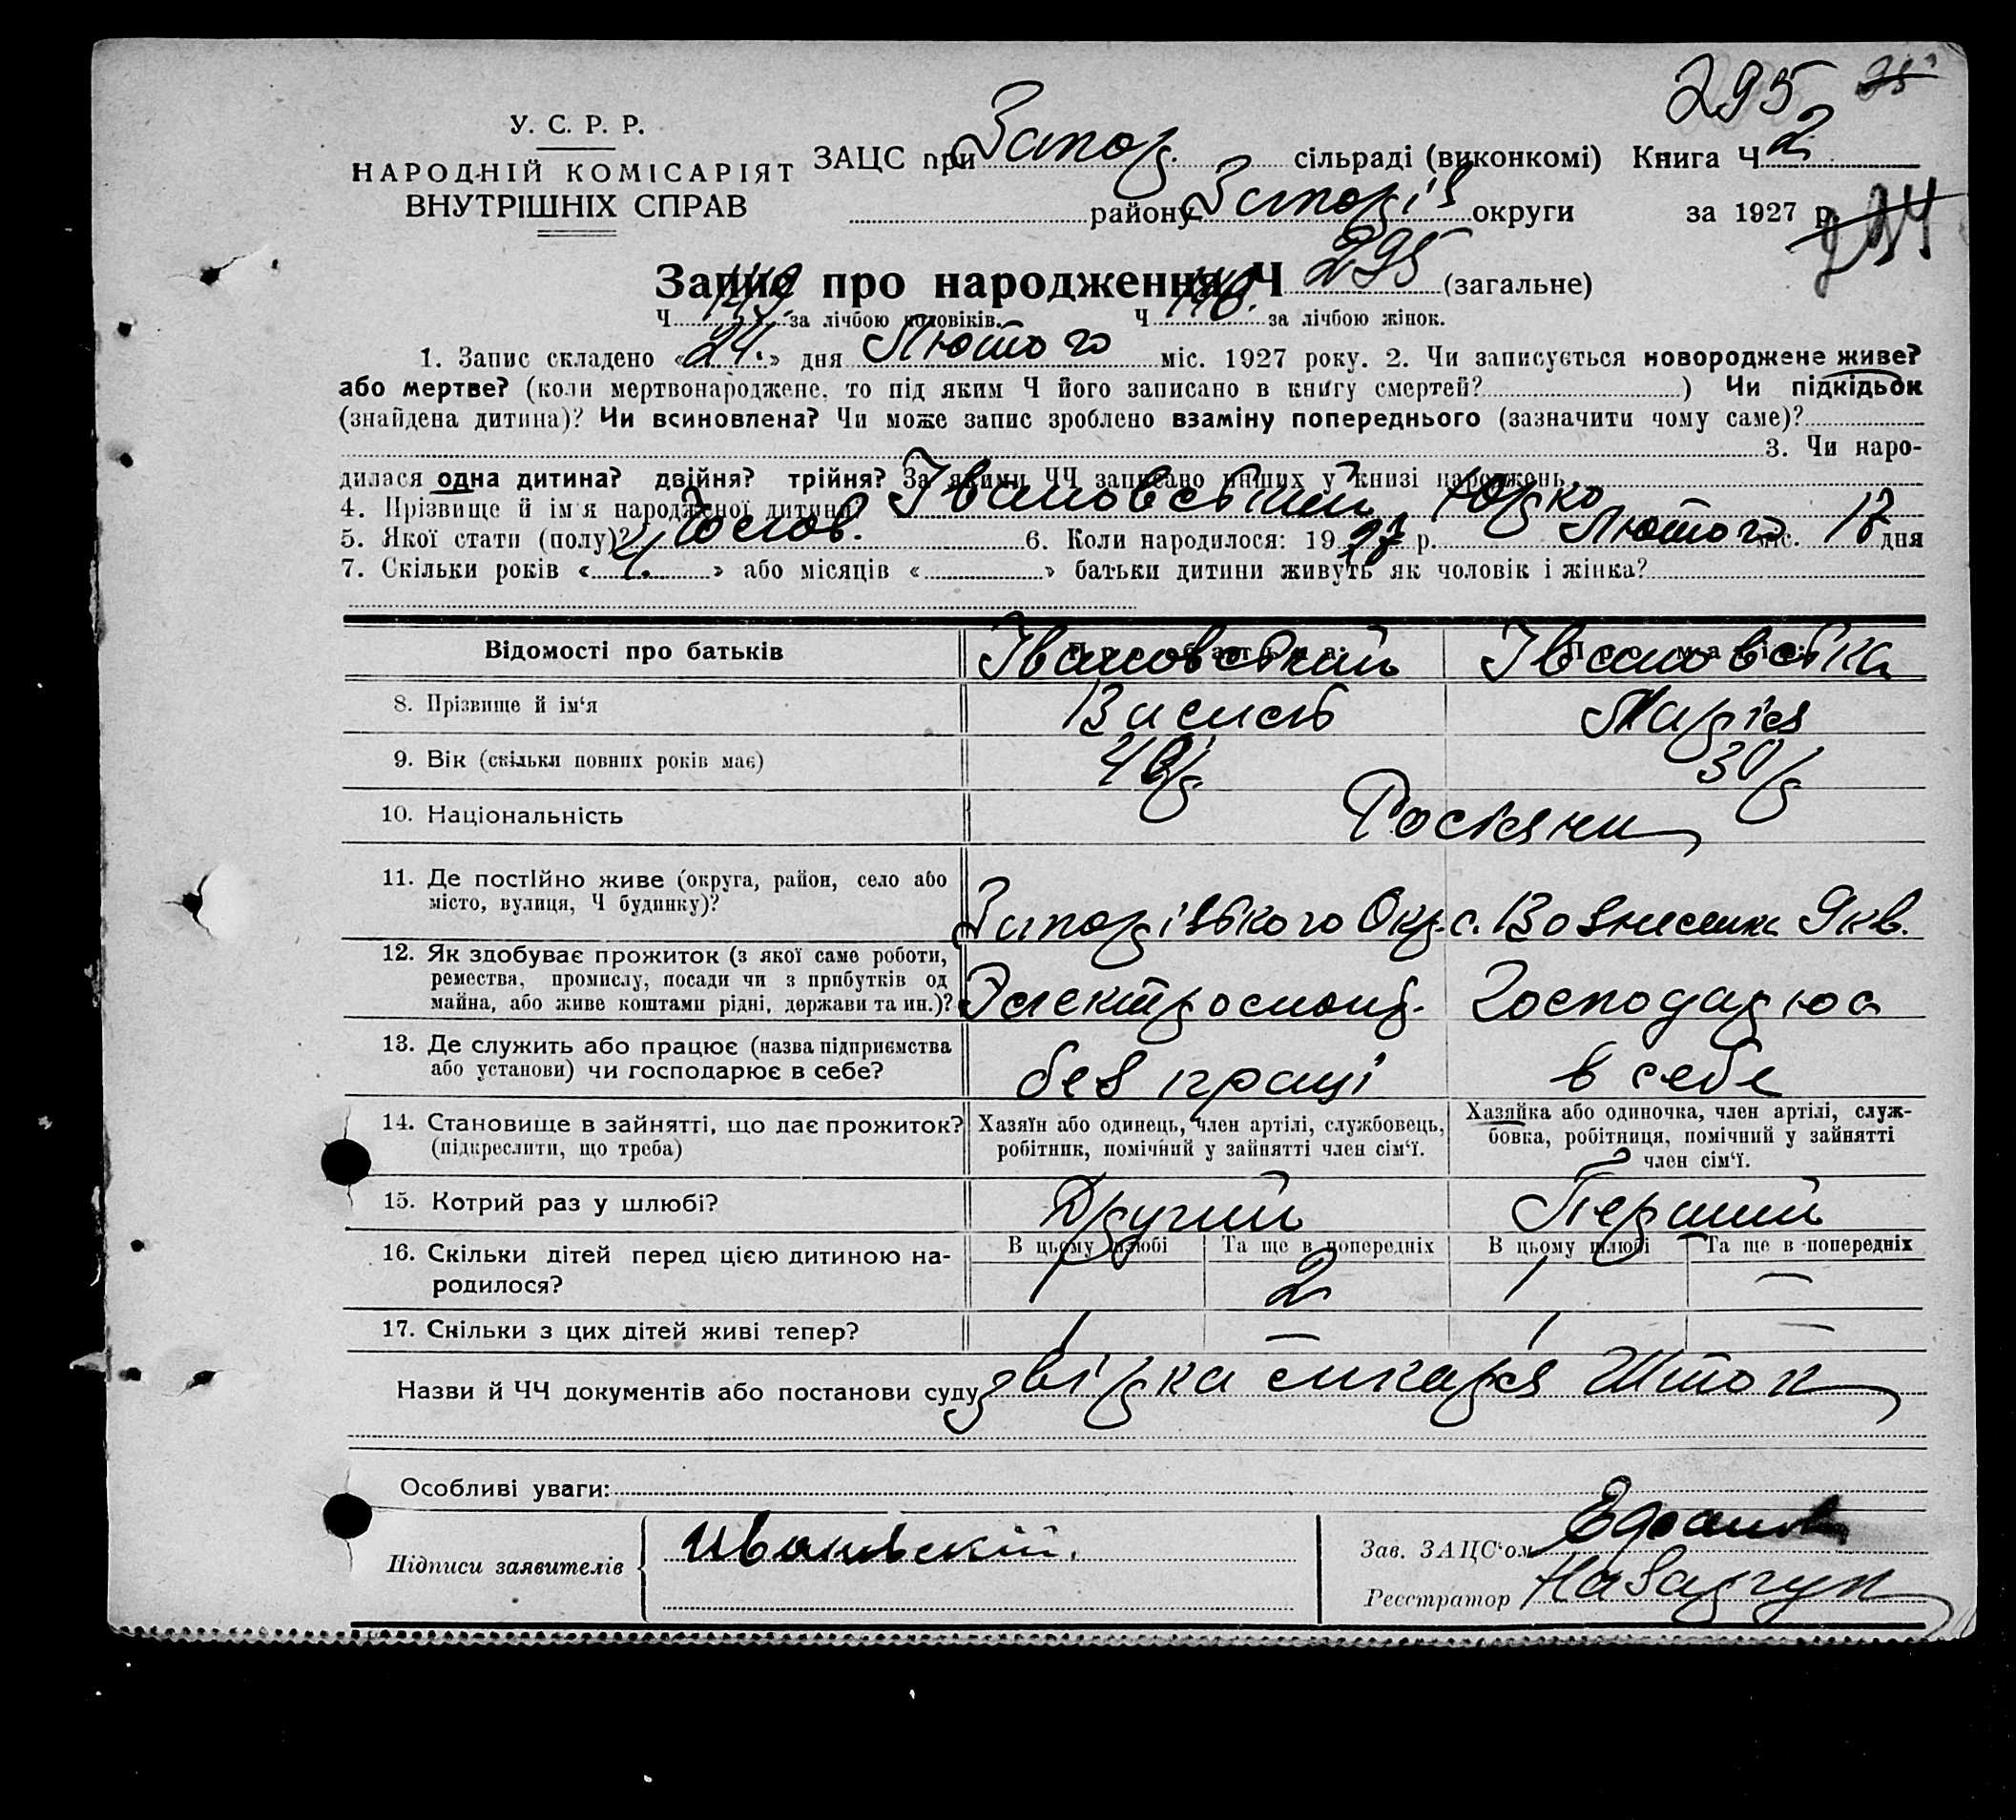 295
У. С. Р. Р.
НАРОДНІЙ КОМІСАРІЯТ
ВНУТРІШНІХ СПРАВ
ЗАЦС при Запор. сільраді (виконкомі) Книга Ч 2
району Запоріз округи за 1927 р.
Запис про народження Ч 295 (загальне)
Ч 149. за лічбою чоловіків. Ч 146. за лічбою жінок.
1. Запис складено «24.» дня Лютого міс. 1927 року. 2. Чи записується новороджене живе?
або мертве? (коли мертвонароджене, то під яким Ч його записано в книгу смертей?) Чи підкідьок
(знайдена дитина)? Чи всиновлена? Чи може запис зроблено взаміну попереднього (зазначити чому саме)?
3. Чи наро-
дилася одна дитина? двійня? трійня? За якими ЧЧ записано инших у книзі народжень
4. Прізвище й ім'я народженої дитини Івановський Юрко
5. Якої стати (полу)? Чолов. 6. Коли народилося: 1927 р. Лютого міс. 17 дня
7. Скільки років «4.» або місяців « » батьки дитини живуть як чоловік і жінка?
Відомості про батьків
8. Прізвище й ім'я Івановський Василь Івановська Марія
9. Вік (скільки повних років має) 30/р
10. Національність Росіяни
11. Де постійно живе (округа, район, село або
місто, вулиця, Ч будинку)? Запорізького Окр. с. Вознесенка 9 кв.
12. Як здобуває прожиток (з якої саме роботи,
ремества, промислу, посади чи з прибутків од
майна, або живе коштами рідні, держави та ин.)? Електромонт. Господарює
13. Де служить або працює (назва підприємства
або установи) чи господарює в себе? без праці в себе
14. Становище в зайнятті, що дає прожиток?
(підкреслити, що треба)
Хазяїн або одинець, член артілі, службовець,
робітник, помічний у зайнятті член сім'ї.
Хазяйка або одиночка, член артілі, служ-
бовка, робітниця, помічний у зайнятті
член сім'ї.
15. Котрий раз у шлюбі? Другий Перший
16. Скільки дітей перед цією дитиною на-
родилося?
В цьому шлюбі Та ще в попередніх В цьому шлюбі Та ще в попередніх
1 2 1 —
17. Скільки з цих дітей живі тепер? 1 — 1 —
Назви й ЧЧ документів або постанови суду довірка лікаря Шток
Особливі уваги:
Підписи заявителів Ивановскій.
Зав. ЗАЦС'ом
Реєстратор